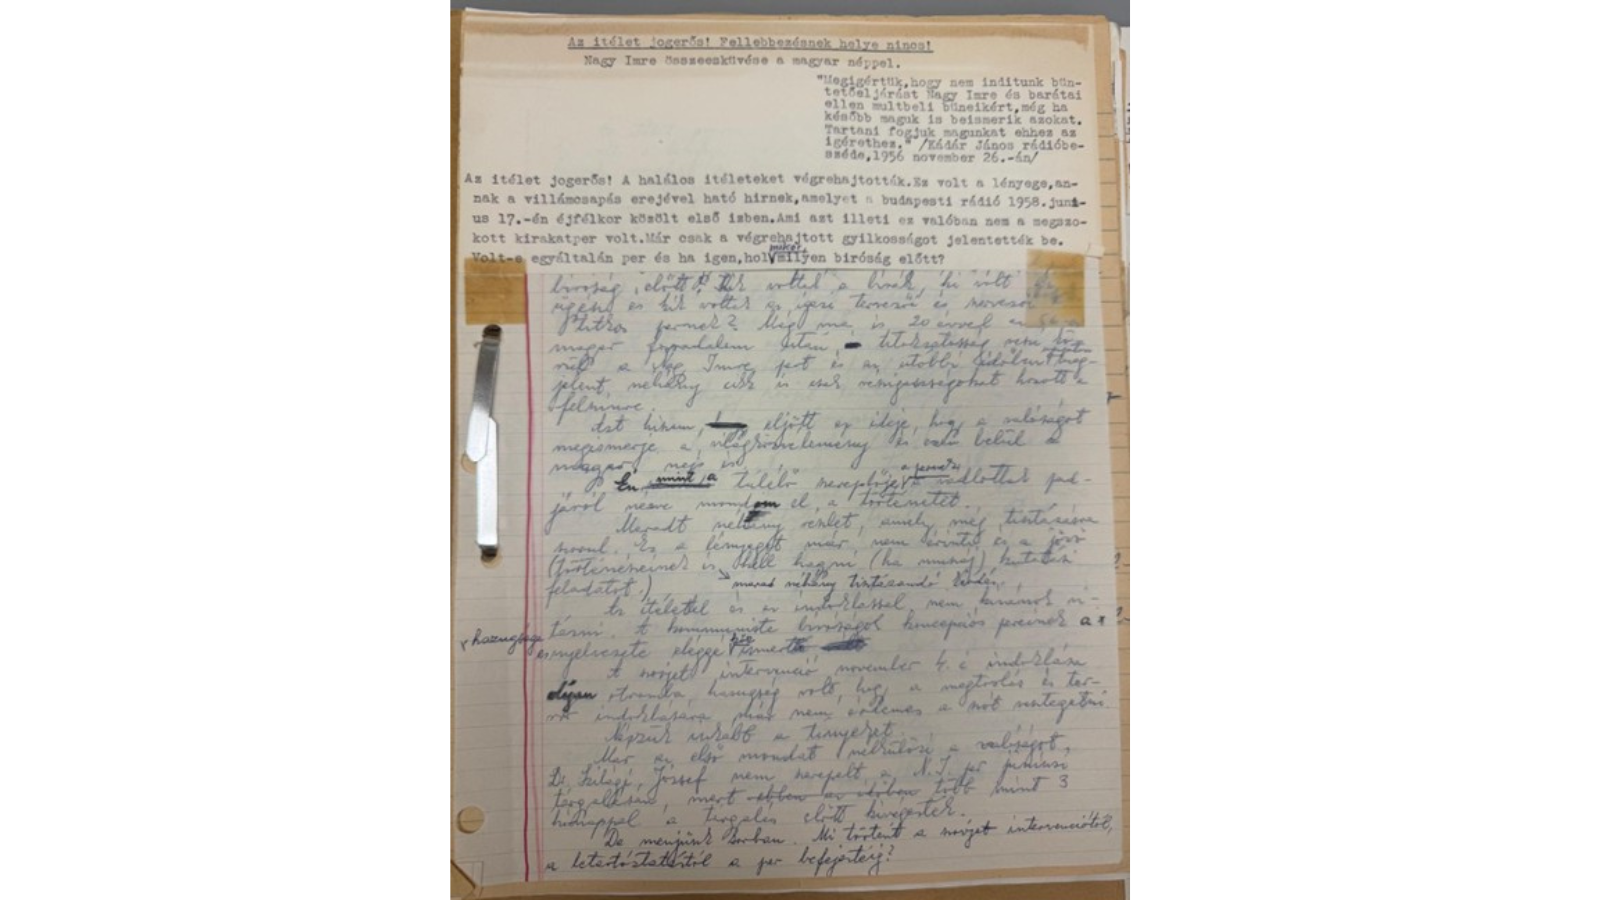 Az itélet jogerős! Fellebbezésnek helye nincs!
Nagy Imre összeesküvése a magyar néppel.
"Megigértük,hogy nem inditunk bün-
tetőeljárást Nagy Imre és barátai
ellen multbeli büneikért,még ha
később maguk is beismerik azokat.
Tartani fogjuk magunkat ehhez az
igérethez." /Kádár János rádióbe-
széde,1956 november 26.-án/
Az itélet jogerős! A halálos itéleteket végrehajtották.Ez volt a lényege,an-
nak a villámcsapás erejével ható hirnek,amelyet a budapesti rádió 1958.juni-
us 17.-én éjfélkor közölt első izben.Ami azt illeti ez valóban nem a megszo-
kott kirakatper volt.Már csak a végrehajtott gyilkosságot jelentették be.
mikor,
Volt-e egyáltalán per és ha igen,hol milyen biróság előtt?
biróság előtt? Kik voltak a birák, ki volt
ügész és kik voltak az igazi tervezői és
titkos pernek? Még ma is, 20 évvel
magyar forradalom után titokzatosság
a Nagy Imre pert és az utóbbi időben meg-
jelent néhány cikk is csak hozott a
felszinre.
Azt hiszem, eljött az ideje, hogy a valóságot
megismerje a világközvélemény és belül a
magyar nép is.
Én mint a túlélő szereplője a vádlottak pad-
járól nézve mondom el a történetet.
Maradt néhány részlet, amely még tisztázásra
szorul. Ez a lényeget már nem érinti és a jövő
(történészeinek is kell hagyni (ha muszáj) kutatási
feladatot.) marad néhány tisztázandó kérdés.
Az itélettel és az indoklással nem kivánok vi-
tázni. A kommunista biróságok koncepciós pereinek a
hazugsága
és nyelvezete eléggé ismert
A szovjet intervenció november 4.-i indoklása
olyan otromba hazugság volt, hogy a megtorlás és ter-
ror indoklására már nem érdemes a szót vesztegetni.
Nézzük inkább a tényeket.
Már az első mondat nélkülözi a valóságot,
Dr Szilágyi József nem szerepelt a N.I. per juniusi
tárgyalásán, mert ebben az időben több mint 3
hónappal a tárgyalás előtt kivégezték.
De menjünk sorban. Mi történt a szovjet intervenciótól,
a letartóztatástól a per befejeztéig?